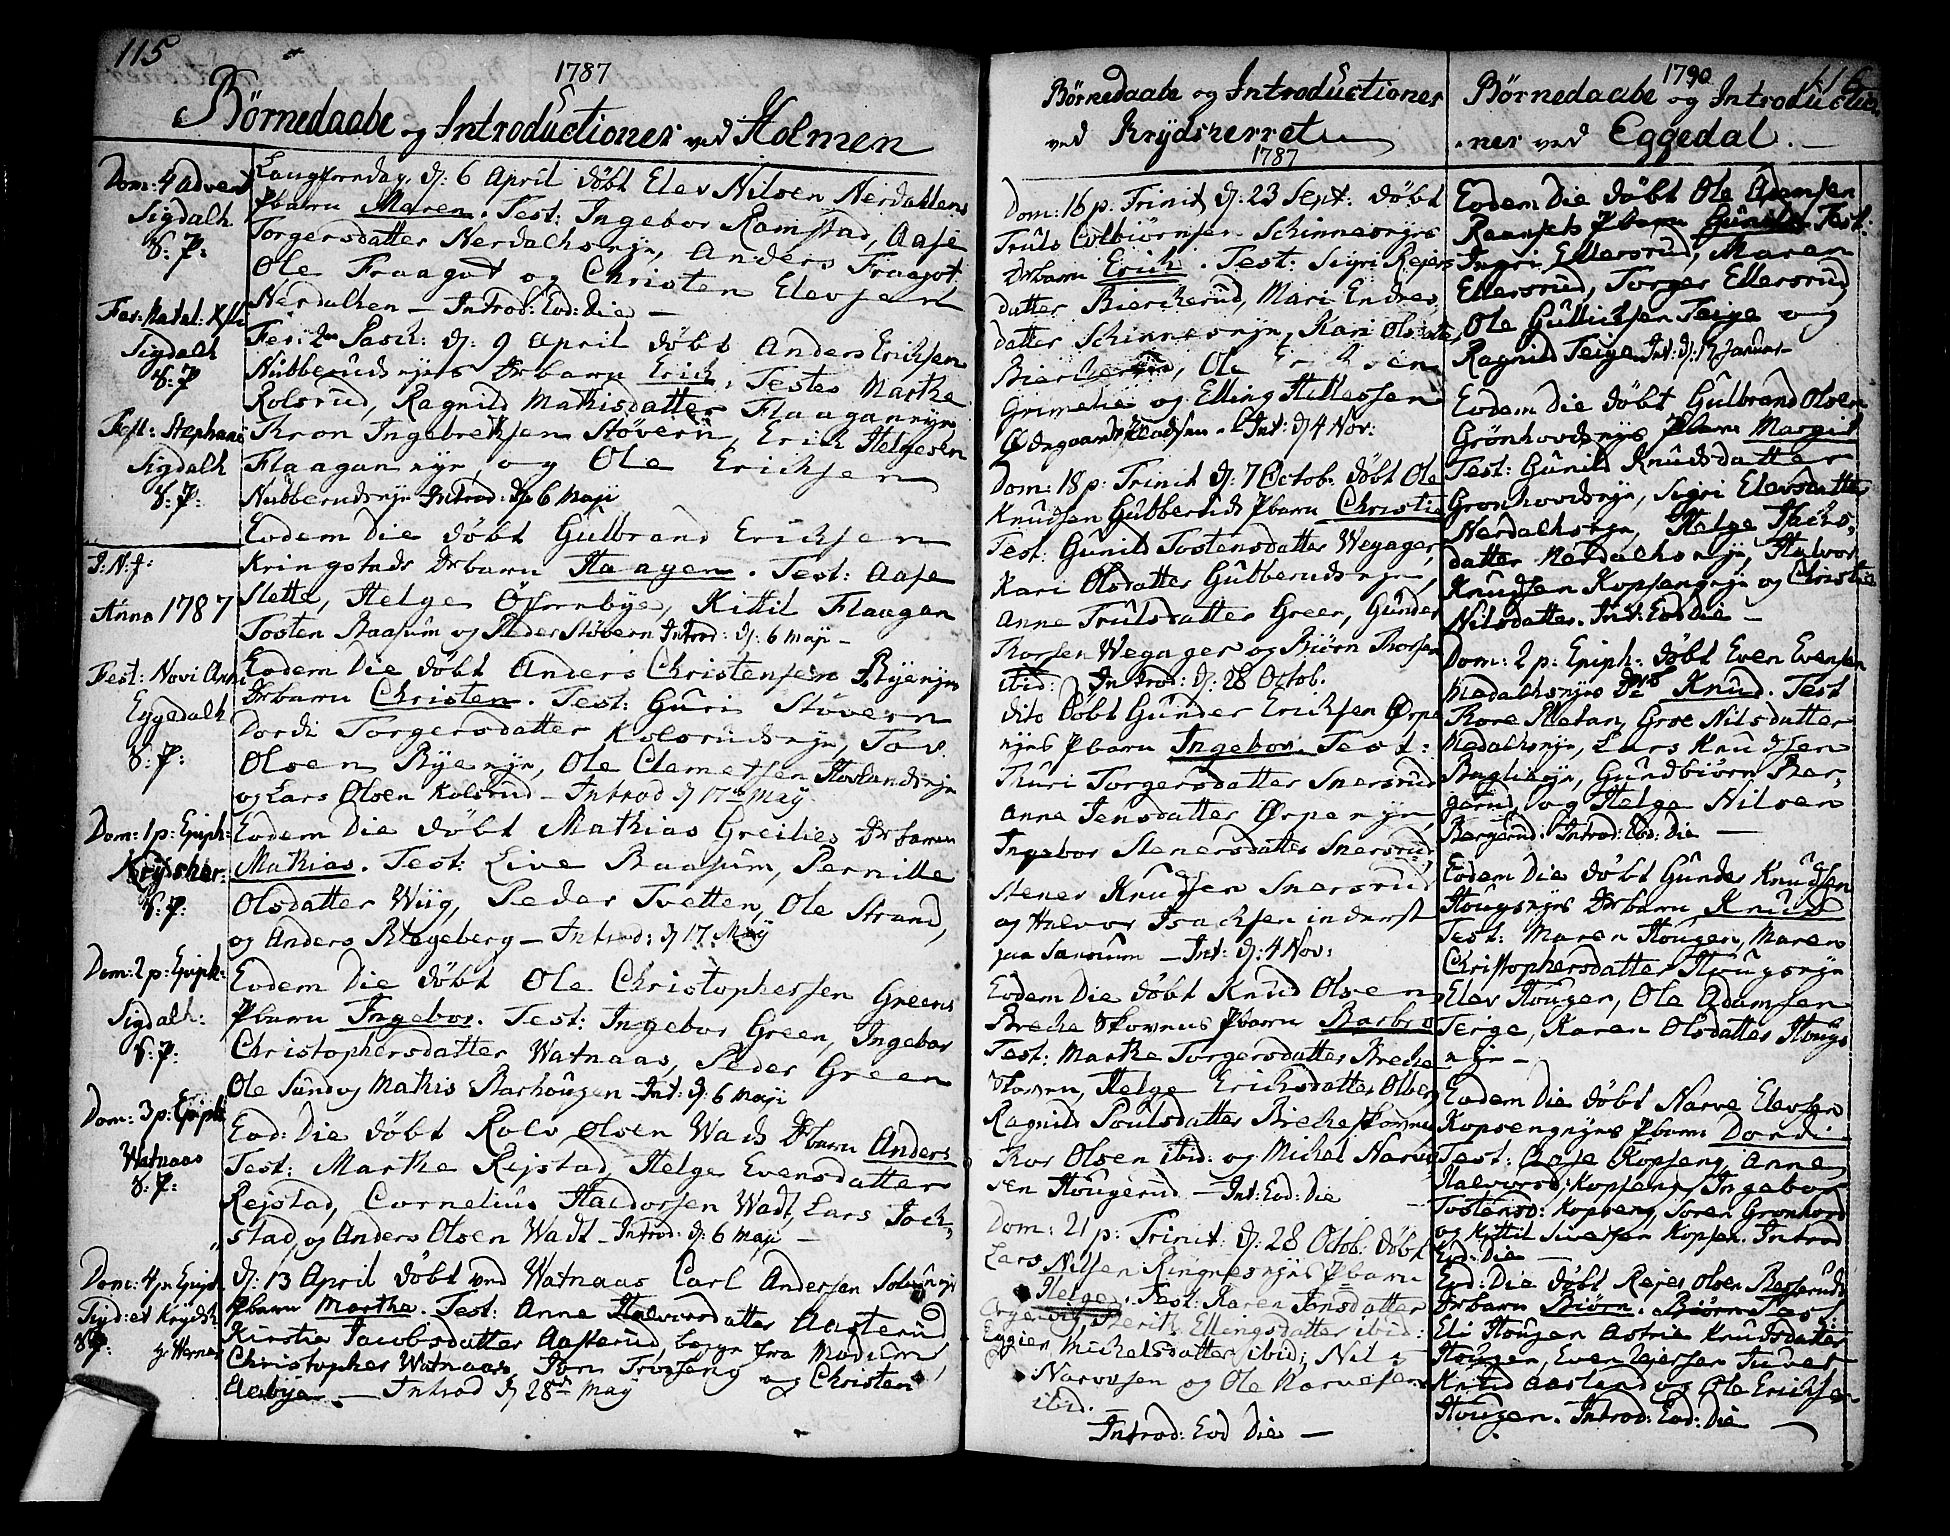 115
1787
Börnedaabe og Introductioner ved Holmen
Dom: 4 Advent
Sigdahl
S: P:
Fer: Natal: Xsti
Sigdahl
S: P
Fest: Stephani
Sigdahl
S: P:
J: N: J:
Anno 1787
Fest: Novi Anni
Eggedahl
S: P:
Dom: 1 p: Epiph:
Krydsher:
S: P:
Dom: 2 p: Epiph:
Sigdahl:
S: P:
Dom: 3 p: Epiph
Watnaas
S: P:
Dom: 4 p: Epiph
Sigd: et Krydsh
S: P:
Langfredag, d: 6 April döbt Elev Nilsen Nerdahlens
Pbarn Maren. Test: Ingebor Ramstad, Aase
Torgersdatter Nerdahlsnje, Anders Fraagot,
Ole Fraagot og Christen Elevsen
Nerdalhen – Introd: Eod: die –
Fer: 2da Pasch: d: 9 April döbt Anders Erichsen
Nubberudsnjes Drbarn Erich, Testes Marthe
Kolsrud, Ragnild Mathisdatter Flaagannje
Thron Ingebretsen Støvern, Erich Helgesen
Flaagannje, og Ole Erichsen
Nubberudsnje Introd: d: 6 Maji
Eodem Die döbt Gulbrand Erichsen
Kringstads Drbarn Haagen. Test: Aase
Slette, Helge Östernbye, Kittil Flaagan
Tosten Baasum og Peder Støvern Introd: d: 6 Maji –
Eodem Die döbt Anders Christensens Byenje
Drbarn Christen. Test: Guri Støvern
Dordi Torgersdatter Kolsrudsnje, Tov
Olsen Byenje, Ole Clemetsen Hovlandsnje
og Lars Olsen Kolsrud – Introd d 17de May
Eodem Die döbt Mathias Greilies Drbarn
Mathias. Test: Live Baasum, Pernille
Olsdatter Wiig, Peder Tvetten, Ole Strand,
og Anders Blegeberg – Introd: d 17 May
Eodem Die döbt Ole Christophersen Greens
Pbarn Ingebor. Test: Ingebor Green, Ingebor
Christophersdatter Watnaas, Peder Green
Ole Sundog Mathis Barhougen – Int: d: 6 Maji
Eod: Die döbt Rolv Olsen Wads Drbarn Anders
Test: Marthe Rejstad, Helge Evensdatter
Rejstad, Cornelius Haldorsen Wadt, Lars Jock-
stad, og Anders Olsen Wadt – Introd: d: 6 Maji –
d: 13 April döbt ved Watnaas Carl Andersen
Pbarn Marthe. Test: Anne Halvorsdatter Aasterud
Kirstie Jacobsdatter Aasterud, fra Modum
Christopher Watnaas, og Christen
Introd d 28de May
Börnedaabe og Introductioner
ved Krydsherret
1787
Dom: 16 p: Trinit d: 23 Sept: döbt
Truls Colbiörnsen Schinnesnjes
Drbarn Erich. Test: Sigri Rejers
datter Bierkerud, Mari Endres
datter Schinnesnje, Kari Olsdatter
Ole
Grimelie og Elling Hellessen
Ødegaards Pladsen – Int: d 4 Nov:
Dom: 18 p: Trinit d: 7 Octob: döbt Ole
Knudsen Gubberuds Pbarn Christie
Test: Gunild Tostensdatter Wegager,
Kari Olsdatter Gubberudsnje,
Anne Trulsdatter Green, Gunder
Thorsen Wegager og Biørn Thorsen
ibid: Introd: d: 28 Octob.
dito döbt Gunder Erichsen Ørpe
njes Pbarn Ingebor. Test:
Thuri Torgersdatter Snersrud
Anne Jensdatter Ørpenje,
Ingebor Stenersdatter Snersrud,
Stener Knudsen Snersrud
og Halvor Isachsen inderst
paa Sansrum – Int: d: 4 Nov:
Eodem Die döbt Knud Olsen
Breche Skovens Pbarn Barbro
Test: Marthe Torgersdatter Breche
Skoven, Helge Erichsdatter Olberg
Ragnild Poulsdatter Breche Skoven
Thor Olsen ibid: og Michel Narve
sen Hougerud – Int: Eod: Die
Dom: 21 p: Trinit: d: 28 Octob: döbt
Lars Nilsen Ringnesnjes Pbarn
Helge. Test: Karen Jonsdatter
Berith Ellingsdatter ibid:
Eggien, Michelsdatter ibid; Nils
Narvesen og Ole Narvesen
ibid.
Introd: Eod Die –
1790
116
Börnedaabe og Introductio-
ner ved Eggedal. –
Eodem Die döbt Ole Adamsen
Pbarn Gunild. Test:
Ingri Ellersrud, Maren
Ellersrud, Torger Ellersrud,
Ole Gullichsen Teige og
Ragnild Teige.
Eodem Die döbt Gulbrand Olsen
Grönhovdsnjes Pbarn Margit
Test: Gunild Knudsdatter
Grønhovdsnje, Sigri Elevsdatter
Nerdalhsnje, Helge
datter Nerdalhsnje, Halvor
Knudsen Kopsengnje og Christie
Nilsdatter. Int: Eod: die –
Dom: 2 p: Epiph: döbt Even Evensen
Medalhsnjes Drb Knud. Test
Thore Pletan, Groe Nilsdatter
Medalhsnje, Lars Knudsen
Baglienje, Gundbiørn Ber-
gerud, og Helge Nilsen
Bergerud. Introd: Eod: Die –
Eodem Die döbt Gunder Knudsen
Hougsnjes Drbarn Knud
Test: Maren Hougen, Maren
Christophersdatter Hougsnje
Elev Hougen, Ole Adamsen
Teige, Karen Olsdatter Hougs
nje –
Eodem Die döbt Narve Elevsen
Kopsengnjes Pbarn Dordi
Test: Aase Kopseng, Anne
Halvorsd: Kopseng, Ingebor
Tostensd: Kopseng, Soren Gronhovd
og Kittil Iversen Kopsen. Introd
Eod: Die –
Eod: Die döbt Rejer Olsen
Drbarn Biørn. Test:
Eli Hougen Astrie Knudsdatter
Hougen, Even Tuver
Knud Aasland og Ole Erichsen
Hougen. Introd: Eod: Die –